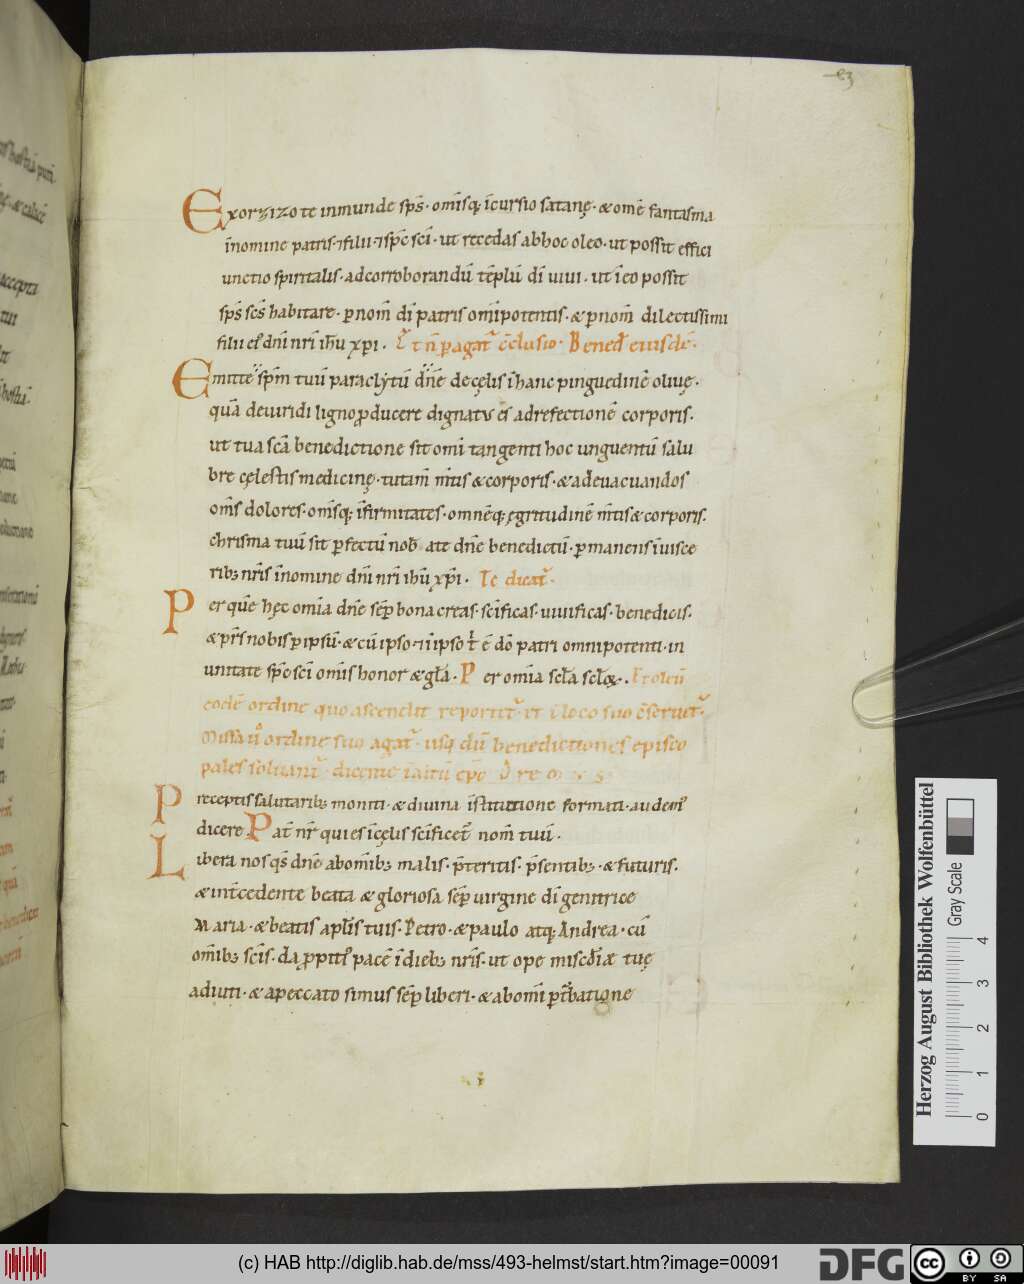 Exorzizo te inmunde sp̄s · om̄isq; īcursio satanę · & om̄e fantasma
īnomine patris · ⁊filii · ⁊sp̄c sc̄i · ut recedas abhoc oleo · ut possit effici
unctio spiritalis · adcorroborandū tēplū dī uiui · ut īeo possit
sp̄s sc̄s habitare · ꝑ nom̄ dī patris om̄ipotentis · & ꝑ nom̄ dilectissimi
filii ei' dn̄i nr̄i ih̄u xp̄i ·
Emitte sp̄m tuū paraclytū dn̄e decęlis īhanc pinguedinē oliuę ·
quā deuiridi ligno ꝓducere dignatus es adrefectionē corporis ·
ut tua sc̄a benedictione sit om̄i tangenti hoc unguentū salu
bre cęlestis medicinę · tutam̄ m̄tis & corporis · & adeuacuandos
om̄s dolores · om̄sq; īfirmitates · omnēq; ęgritudinē m̄tis & corporis ·
chrisma tuū sit ꝑfectū nob̄ ate dn̄e benedictū · ꝑmanens īuisce
ribꝫ nr̄is īnomine dn̄i nr̄i ih̄u xp̄i ·
Per quē hęc om̄ia dn̄e sēp bona creas · sc̄ificas · uiuificas · benedicis ·
& p̄stas nobis ꝑ ipsū · & cū ipso · ⁊ īipso ē dō patri omnipotenti · in
unitate sp̄c sc̄i om̄is honor & gl̄a · Per om̄ia sc̄la sc̄loꝝ · Et oleū
eodē ordine quo ascendit reportet᷑ · et ī loco suo c̄seruet᷑ ·
Missa ū ordine suo agat᷑ · usq; dū benedictiones episco
pales
Preceptis salutaribꝫ moniti · & diuina īstitutione formati · audem'
dicere Pat̄ nr̄ qui es īcęlis sc̄ificet᷑ nom̄ tuū ·
Libera nos qs̄ dn̄e abom̄ibꝫ malis · p̄teritis · p̄sentibꝫ · & futuris ·
& int̄cedente beata & gloriosa sēp uirgine dī genitrice
Maria · & beatis apl̄is tuis · Petro · & paulo atq; Andrea · cū
om̄ibꝫ sc̄is · da ꝓpiti' pacē īdiebꝫ nr̄is · ut ope mis̄cdīæ tuę
adiuti · & apeccato simus sēp liberi · & abom̄i ꝑt̄batione
Herzog August Bibliothek Wolfenbüttel
Gray Scale
0 1 2 3 4
(c) HAB http://diglib.hab.de/mss/493-helmst/start.htm?image=00091
DFG
cc BY SA